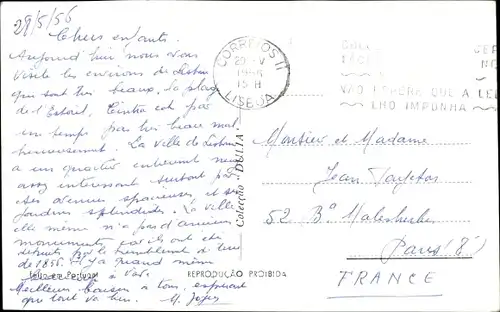 29/5/56
Chers enfants.
Aujourd'hui nous avons
visité les environs de Lisbonne
qui sont très beaux, la plage
de l'Estoril, Cintra est par
un temps pas très beau mal-
heureusement. La ville de Lisbonne
a un quartier entièrement neuf
assez intéressant surtout par
ses avenues spacieuses et ses
jardins splendides. La ville
elle même n'a pas d'anciens
monuments car ils ont été
détruits par le tremblement de terre
de 1856. Il y a quand même
à voir.
Meilleurs baisers à tous, espérant
que tout va bien.
CORREIOS II
29 V
1956
15 H
LISBOA
VÃO ESPERA QUE A LEI
LHO IMPONHA
Colecção DÚLIA
REPRODUÇÃO PROIBIDA
Monsieur et Madame
Jean
52 Bd Malesherbes
Paris (8)
FRANCE